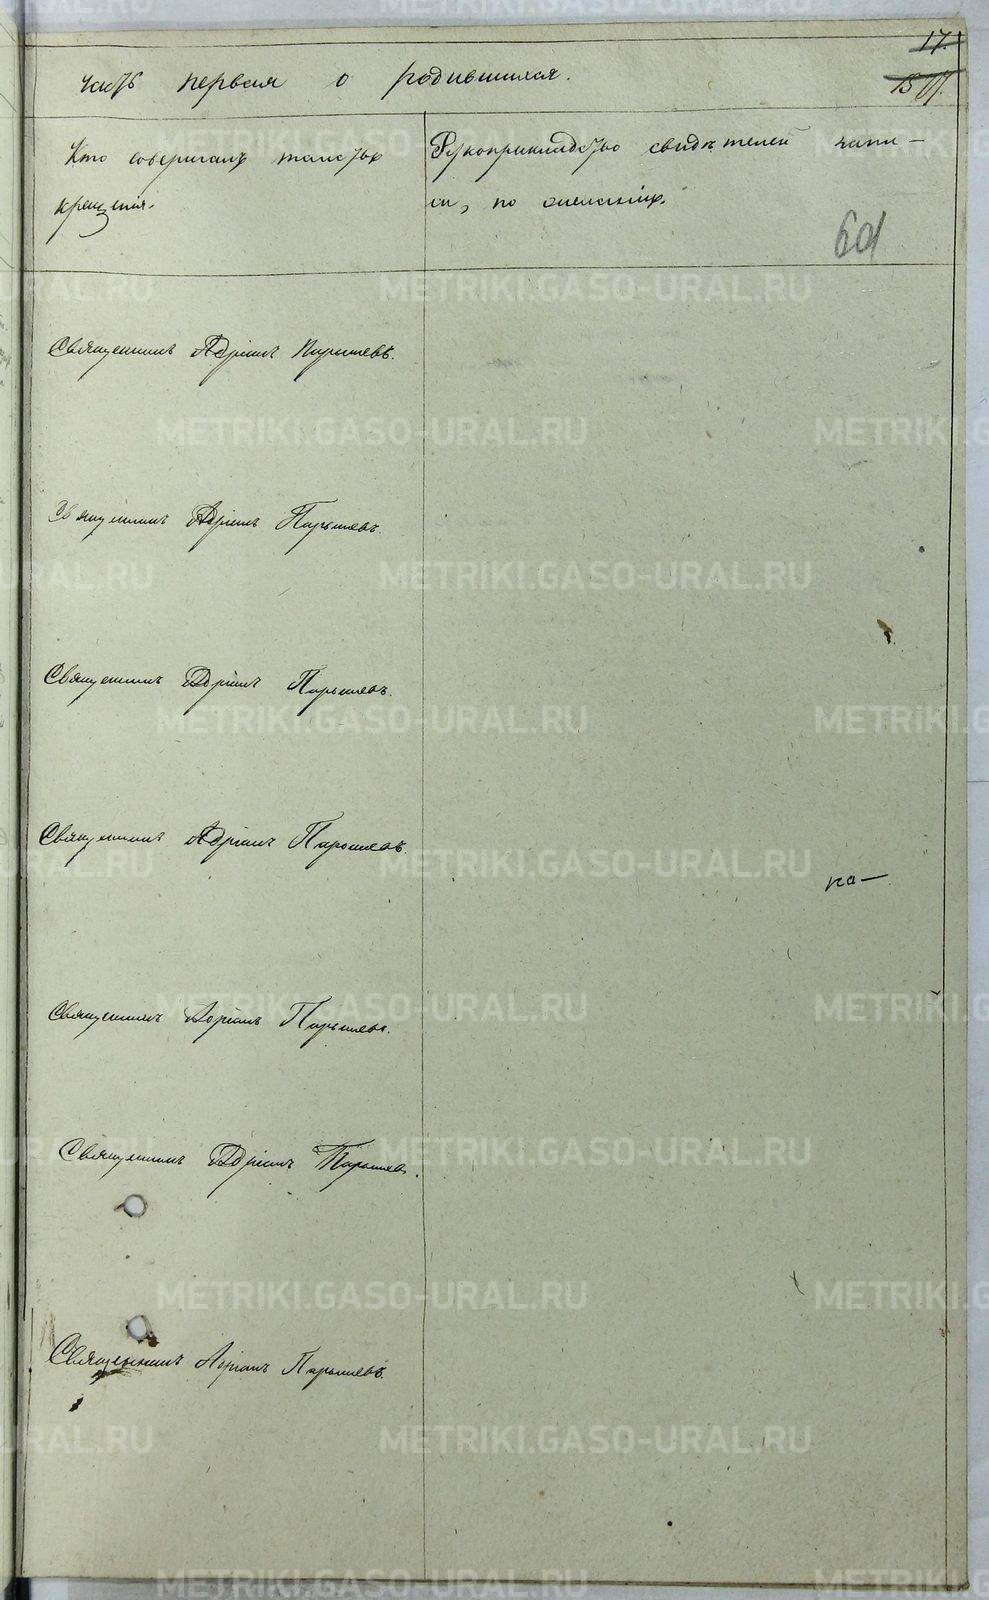 17.
часть первая о родившихся.
Кто совершалъ таинство
крещенія.
Рукоприкладство свидѣтелей запи-
си, по желанію.
601
Священникъ Адріанъ Парышевъ.
Священникъ Адріанъ Парышевъ.
Священникъ Адріанъ Парышевъ.
Священникъ Адріанъ Парышевъ.
на-
Священникъ Адріанъ Парышевъ.
Священникъ Адріанъ Парышевъ.
Священникъ Адріанъ Парышевъ.
METRIKI.GASO-URAL.RU